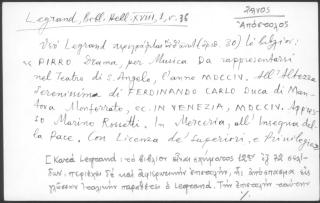 Legrand, Bibl. Hell. XVIII, 1, σ. 36
Ζῆνος
Ἀπόστολος
Legrand περιγράφει (ἀρ. 30) τὸ βιβλίον:
« PIRRO Drama, per Musica Da rappresentarsi
nel Teatro di S. Angelo, l'anno MDCCIV. All'Altezza
Serenissima di FERDINANDO CARLO Duca di Man-
tova Monferrato, ec. IN VENEZIA, MDCCIV. Appres-
so Marino Rossetti. In Merceria, all'Insegna del-
la Pace. Con Licenza de' Superiori, e Privilegio»
[Κατὰ Legrand: τὸ βιβλίον εἶναι σχήματος 12ου ἐξ 72 σελί-
δων. περιέχει δὲ καὶ ἀφιερωτικὴν ἐπιστολήν, ἧς ἀπόσπασμα εἰς
γλῶσσαν Ἰταλικὴν παραθέτει ὁ Legrand. Τὴν ἐπιστολὴν ταύτην